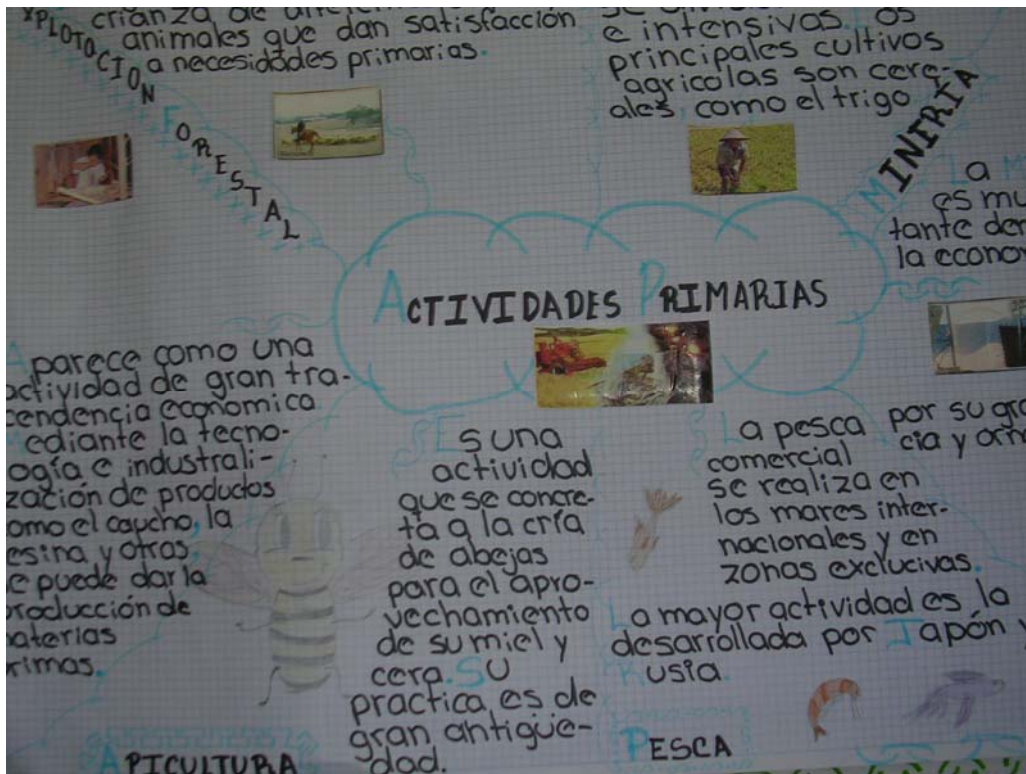 crianza de
animales que dan satisfacción
a necesidades primarias.
e intensivas. os
principales cultivos
agricolas son cere-
ales, como el trigo
XPLOTOCION FORESTAL
MINIRIA
La M
es mu
tante den
la econo
ACTIVIDADES PRIMARIAS
Aparece como una
actividad de gran tra-
cendencia economica
mediante la tecno-
ogía e industrali-
zación de productos
omo el caucho, la
esina y otros.
e puede dar la
roducción de
aterias
rimas.
ES una
actividad
que se concre-
ta a la cría
de abejas
para el apro-
vechamiento
de su miel y
cera. SU
practica, es de
gran antigüe-
dad.
La pesca por su gra
comercial cia y
se realiza en
los mares inter-
nacionales y en
zonas exclucivas.
La mayor actividad es, la
desarrollada por Japón y
Rusia.
APICULTURA
PESCA